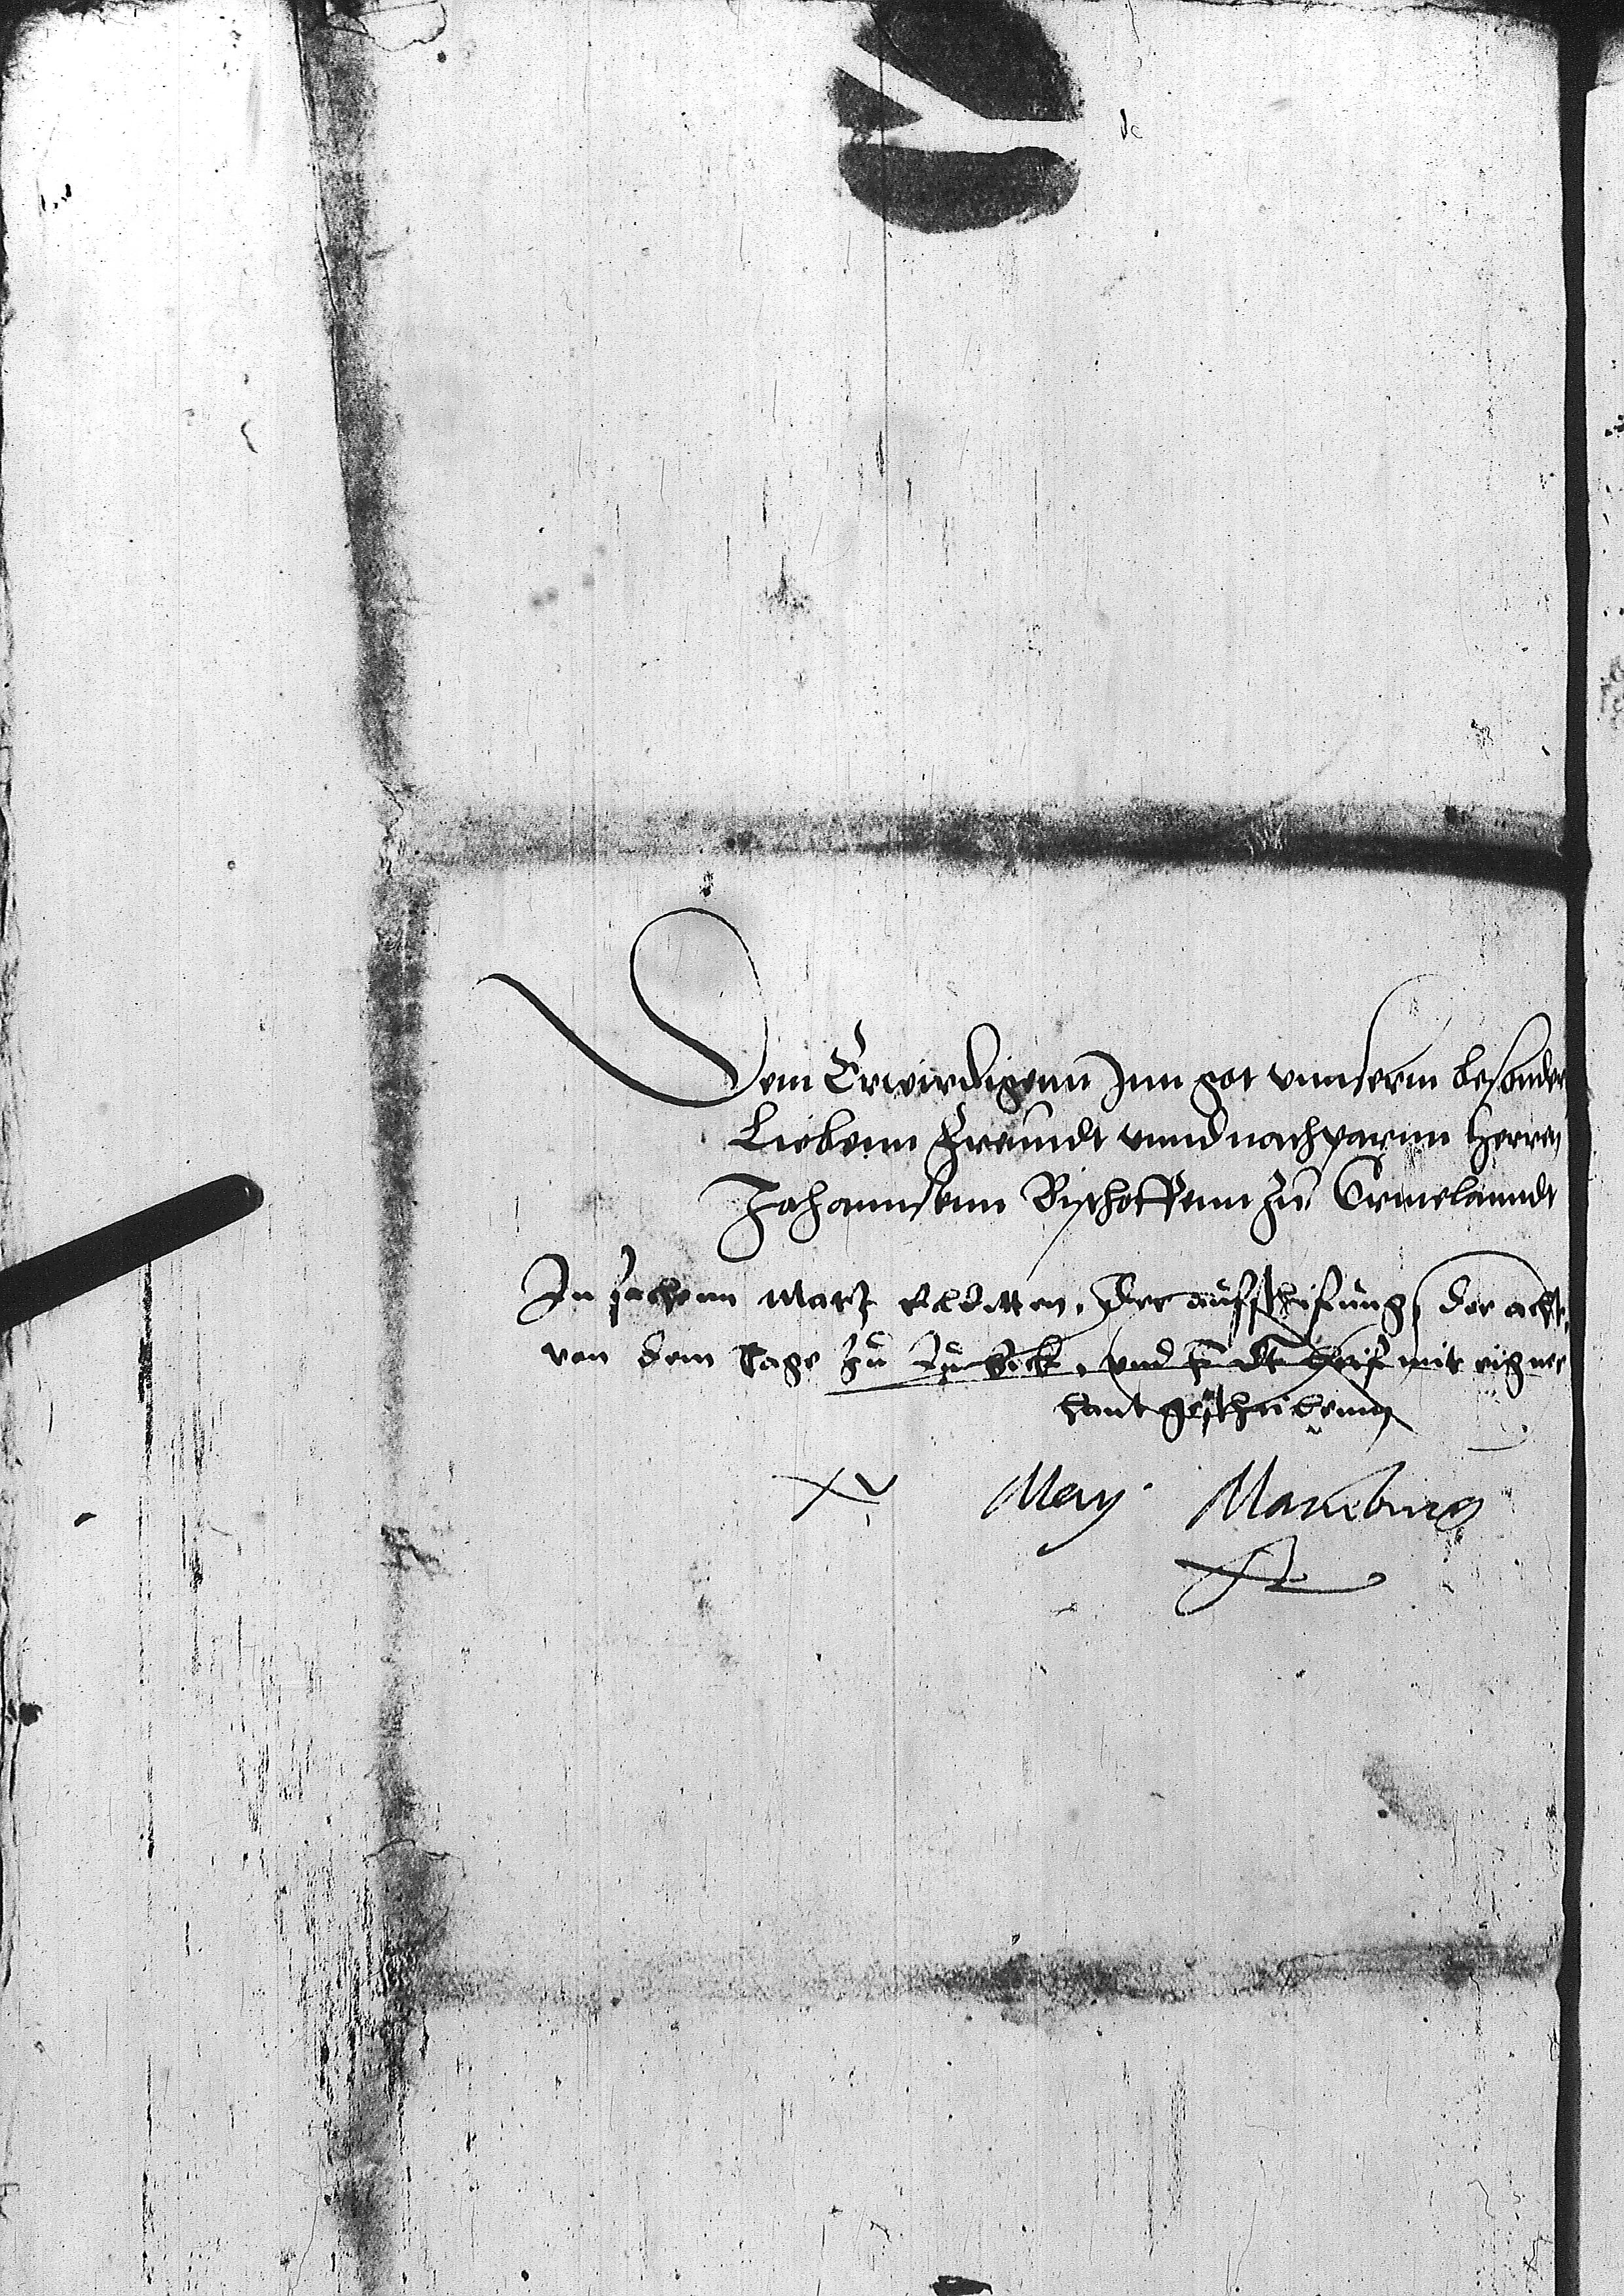 Dem Erwirdigenn Inn got vnnserm besonder
Liebenn Freundt vnnd nachparnn Herren
Johannsenn Bischoffenn zu Ermelanndt
In sachenn Matz der aufschifung der
von dem Tage zu vnd mit eigner
hant geschribenn
xv May Marieburg